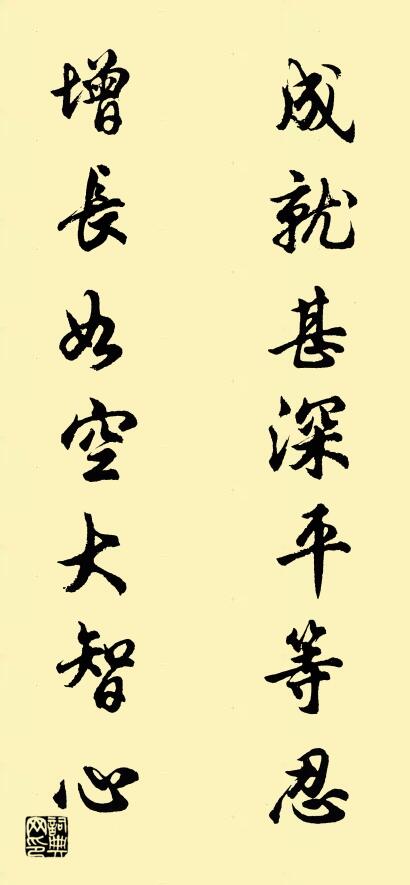 成就甚深平等忍
增長如空大智心
詞典网印